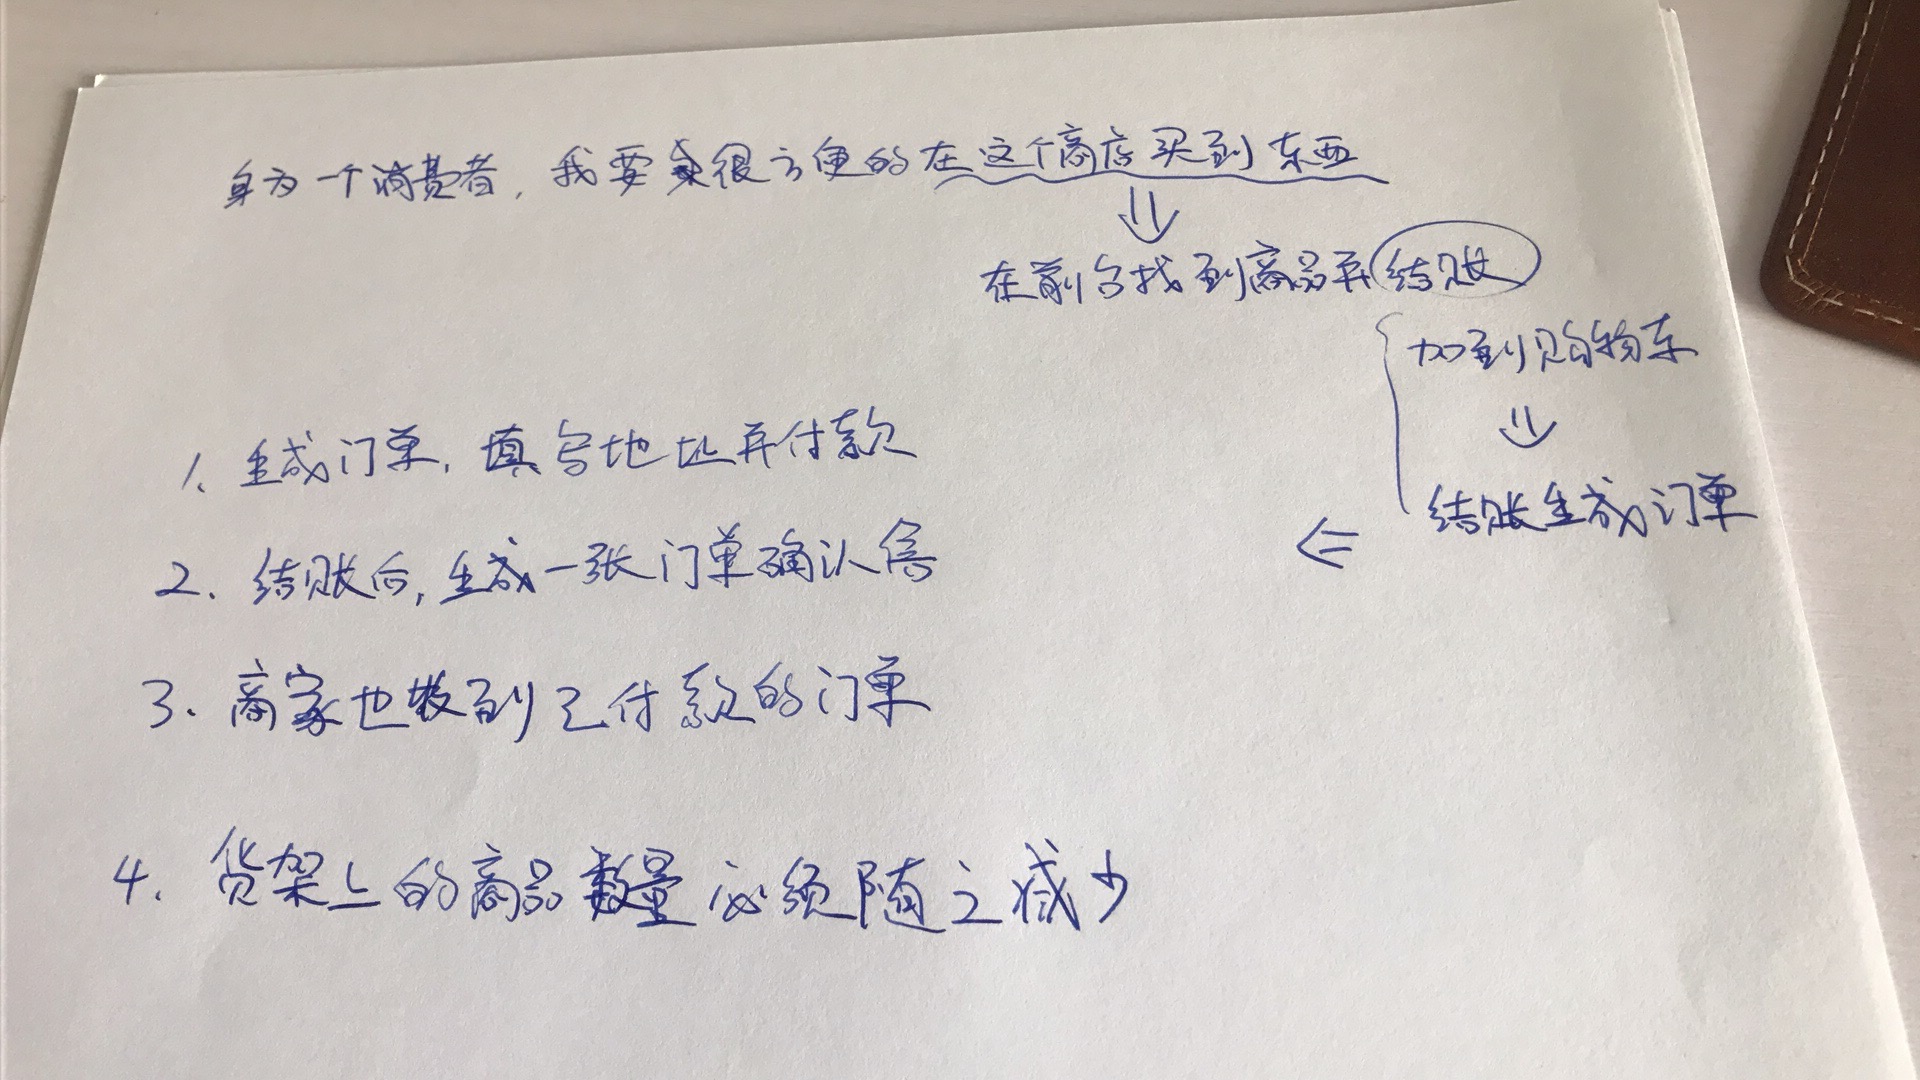 身为一个消费者，我要很方便的在这个商店买到东西
在前台找到商品并结账
加到购物车
结账生成订单
1. 生成订单，填写地址并付款
2. 结账后，生成一张订单确认信
3. 商家也收到已付款的订单
4. 货架上的商品数量必须随之减少